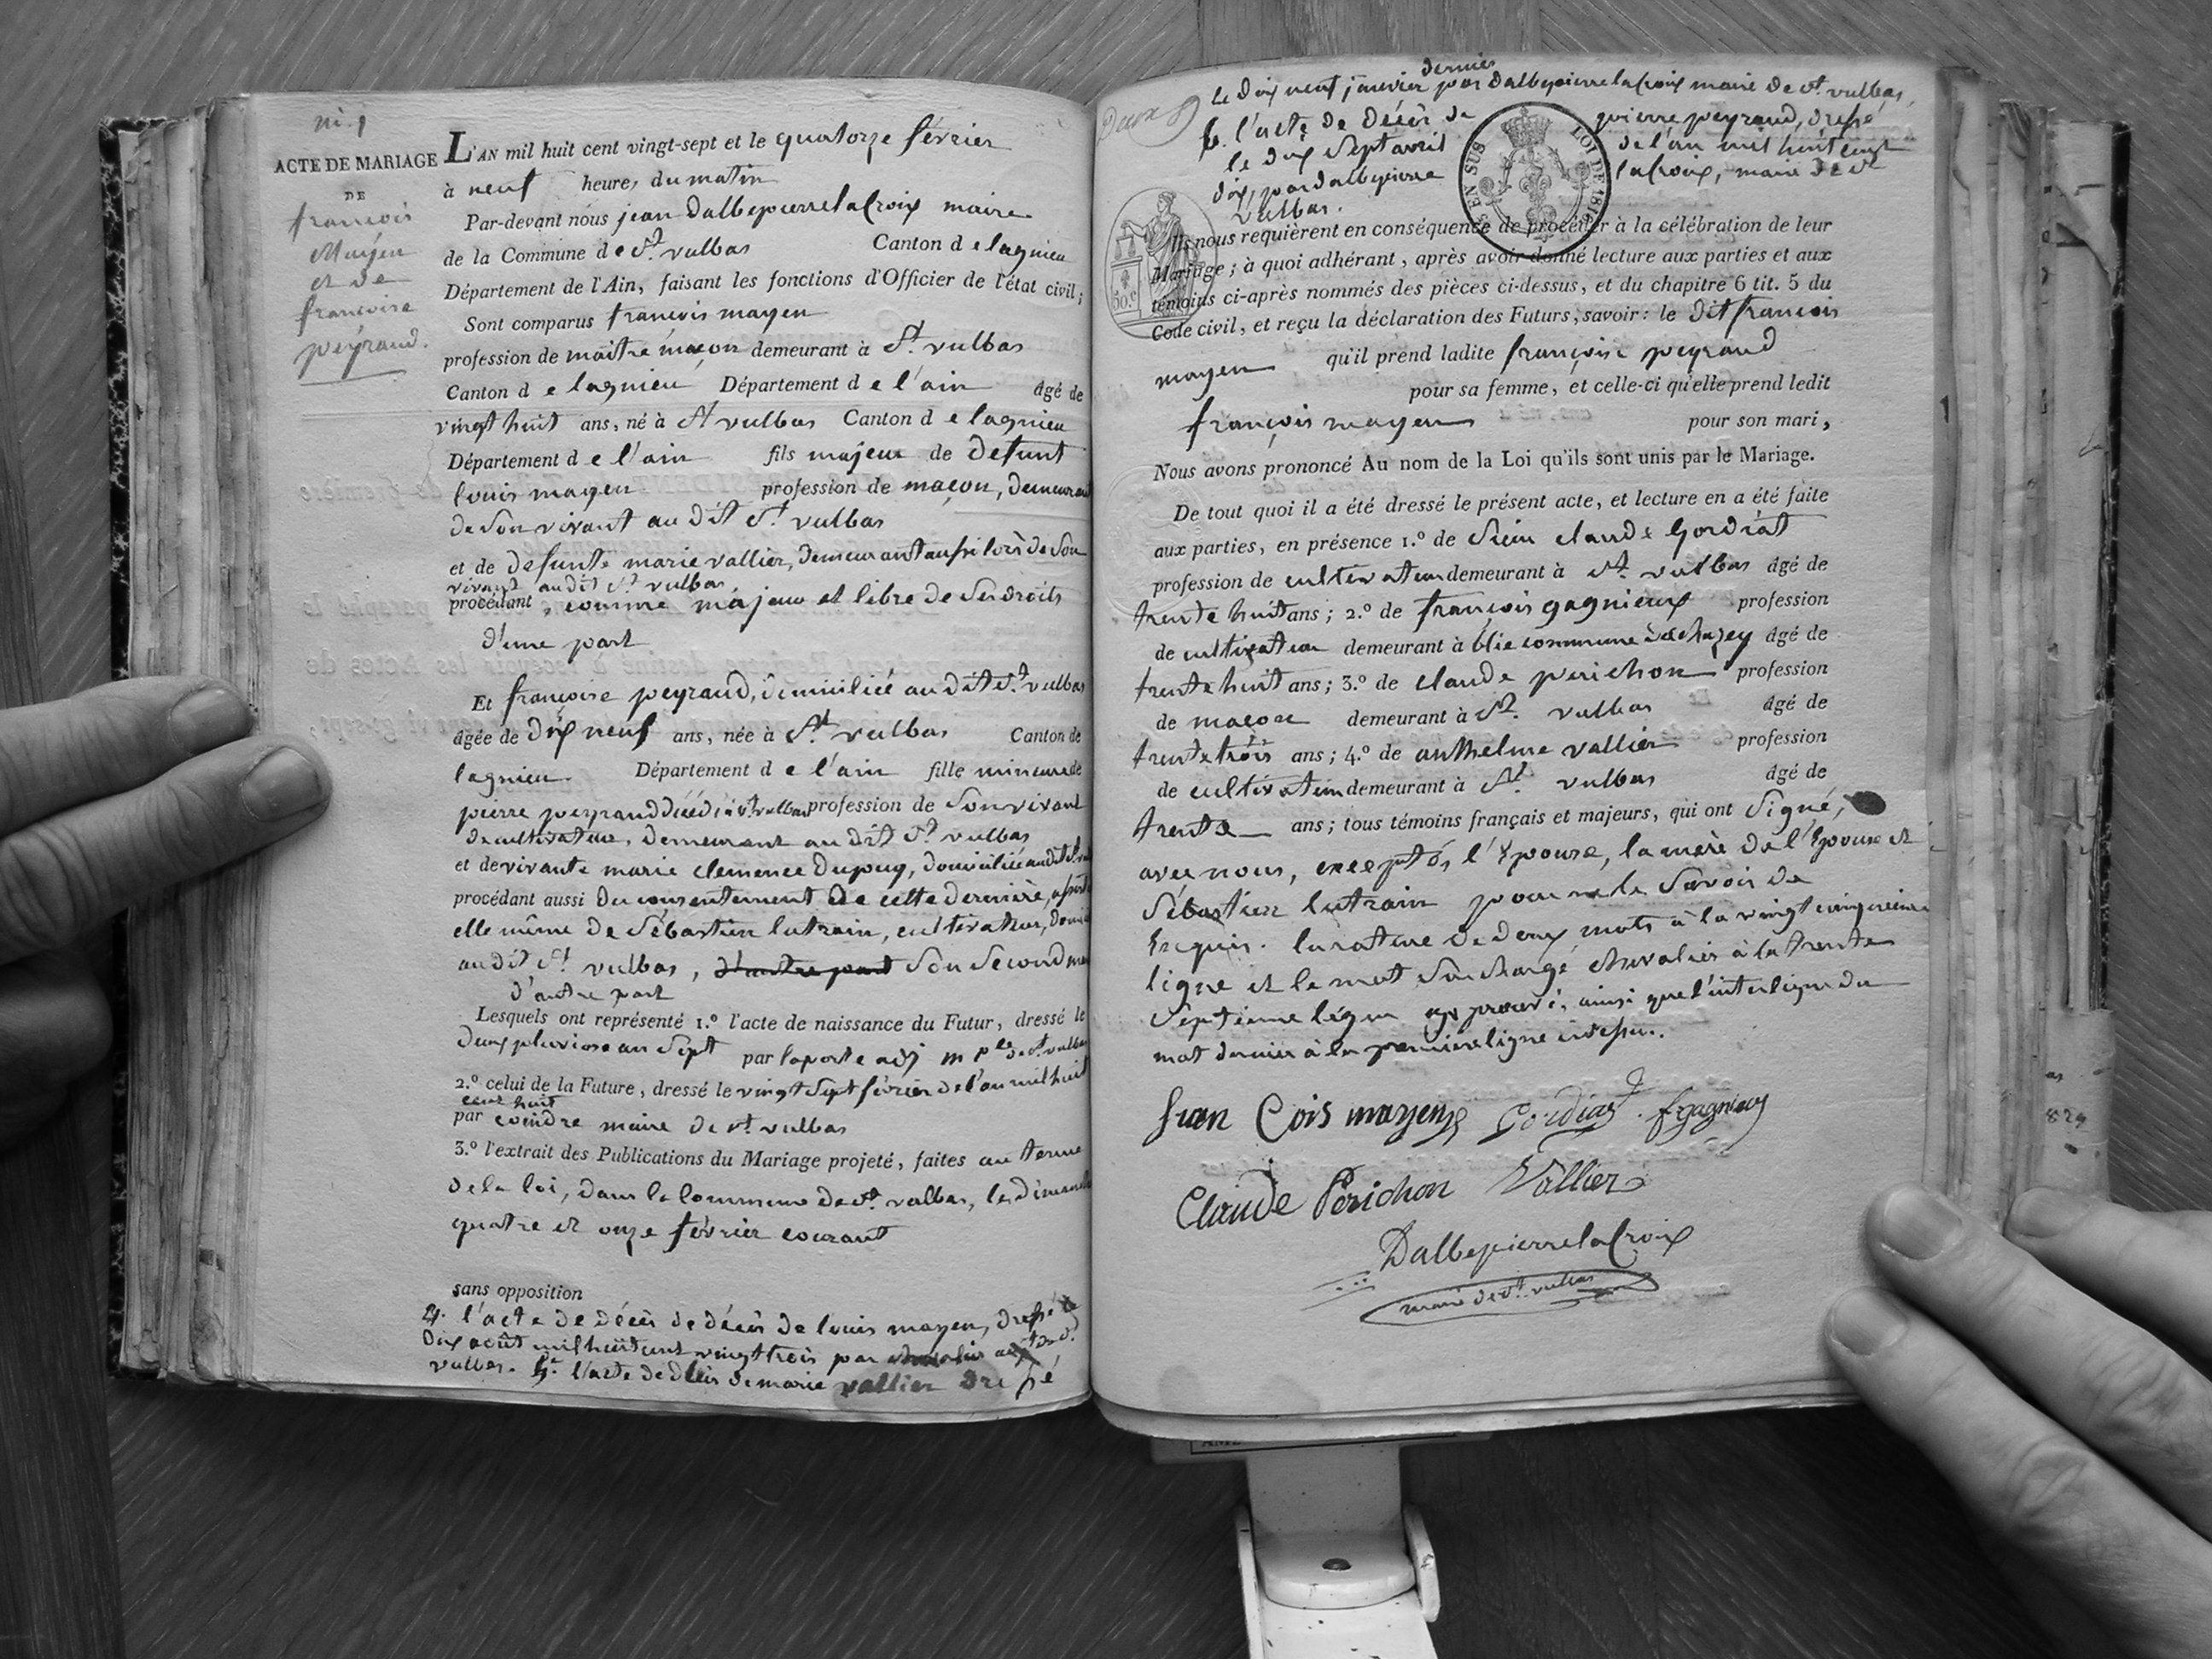 n.° 1
ACTE DE MARIAGE
DE
françois
Mayen
et de
françoise
peyraud.
L'AN mil huit cent vingt-sept et le quatorze février
à neuf heures du matin
Par-devant nous jean Dalbepierrelacroix maire
de la Commune de St. vulbas Canton de lagnieu
Département de l'Ain, faisant les fonctions d'Officier de l'état civil;
Sont comparus françois mayen
profession de maître maçon demeurant à St. vulbas
Canton de lagnieu Département de l'ain âgé de
vingt huit ans, né à St vulbas Canton de lagnieu
Département de l'ain fils majeur de defunt
louis mayen profession de maçon, demeurant
de son vivant au dit St. vulbas
et de defunte marie vallier, demeurant aussi lors de son
vivant au dit St. vulbas
procédant, comme majeur et libre de ses droits
d'une part
Et françoise peyraud, domiciliée au dit St. vulbas
âgée de dix neuf ans, née à St. vulbas Canton de
lagnieu Département de l'ain fille mineure de
pierre peyraud décédé à St. vulbas profession de son vivant
de cultivateur, demeurant au dit St. vulbas
et de vivante marie clemence Dupuy, domiciliée au dit St. vul
procédant aussi du consentement de cette dernière, assisté
elle même de Sébastien lutrain, cultivateur, domi
au dit St. vulbas, d'autre part son second mari
d'autre part
Lesquels ont représenté 1.° l'acte de naissance du Futur, dressé le
deux pluviose an sept par laporte adj m ple de St. vulbas
2.° celui de la Future, dressé le vingt sept février de l'an mil huit
cent huit
par coindre maire de St. vulbas
3.° l'extrait des Publications du Mariage projeté, faites au terme
de la loi, dans la commune de St. vulbas, les dimanches
quatre et onze février courant
sans opposition
4.° l'acte de décès de décès de louis mayen, dressé le
dix août mil huit cent vingt trois par chevalier adjt de St.
vulbas. 5.° l'acte de décès de marie vallier dressé
Deux
dernier
le dix neuf janvier par Dalbepierrelacroix maire de St. vulbas,
6. l'acte de décès de pierre peyraud, dressé
le dix sept avril de l'an mil huit cent
dix, par dalbepierre lacroix, maire de St
vulbas.
S EN SUS LOI DE 1816
50.c
Ils nous requièrent en conséquence de procéder à la célébration de leur
Mariage; à quoi adhérant, après avoir donné lecture aux parties et aux
témoins ci-après nommés des pièces ci-dessus, et du chapitre 6 tit. 5 du
Code civil, et reçu la déclaration des Futurs, savoir: le dit françois
mayen qu'il prend ladite françoise peyraud
pour sa femme, et celle-ci qu'elle prend ledit
françois mayen pour son mari,
Nous avons prononcé Au nom de la Loi qu'ils sont unis par le Mariage.
De tout quoi il a été dressé le présent acte, et lecture en a été faite
aux parties, en présence 1.° de Sieur claude Gordiat
profession de cultivateur demeurant à St. vulbas âgé de
trente huit ans; 2.° de françois gagnieux profession
de cultivateur demeurant à blie commune de chazey âgé de
trente huit ans; 3.° de claude perichon profession
de maçon demeurant à St. vulbas âgé de
trente trois ans; 4.° de anthelme vallier profession
de cultivateur demeurant à St. vulbas âgé de
trente ans; tous témoins français et majeurs, qui ont signé,
avec nous, exceptés l'épouse, la mère de l'épouse et
Sébastien lutrain pour ne le savoir de
Enquis. la rature de deux mots à la vingt cinquieme
ligne et le mot surchargé chevalier à la trente
septieme ligne approuvé, ainsi que l'interligne du
mot dernier à la premiere ligne cidessus.
fran Cois mayen Gordiat. fgagnieux
Claude Périchon Vallier
Dalbepierrelacroix
maire de St. vulbas